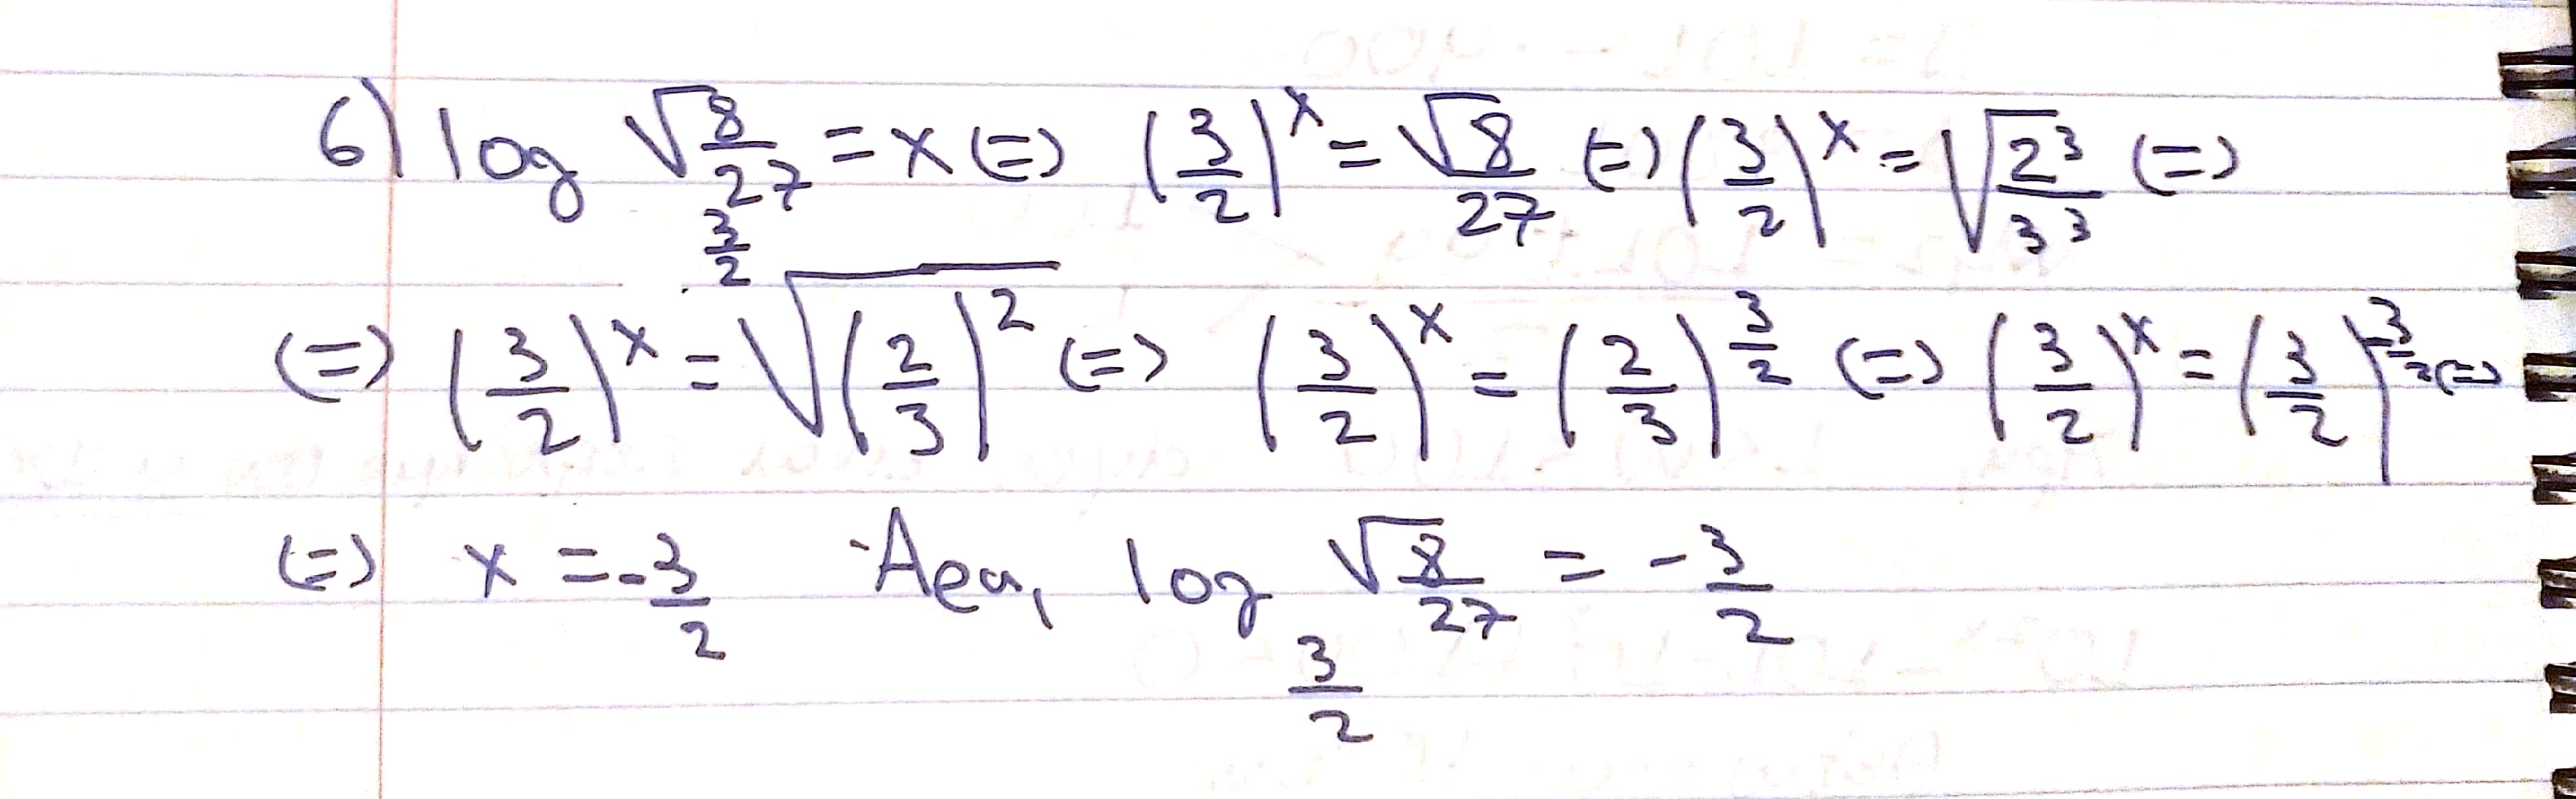 6) log 3/2 √8/27 = x (=) (3/2)^x = √8/27 (=) (3/2)^x = √2^3/3^3 (=)
(=) (3/2)^x = √(2/3)^2 (=) (3/2)^x = (2/3)^3/2 (=) (3/2)^x = (3/2)^-3/2 (=)
(=) x = -3/2 Άρα, log 3/2 √8/27 = -3/2